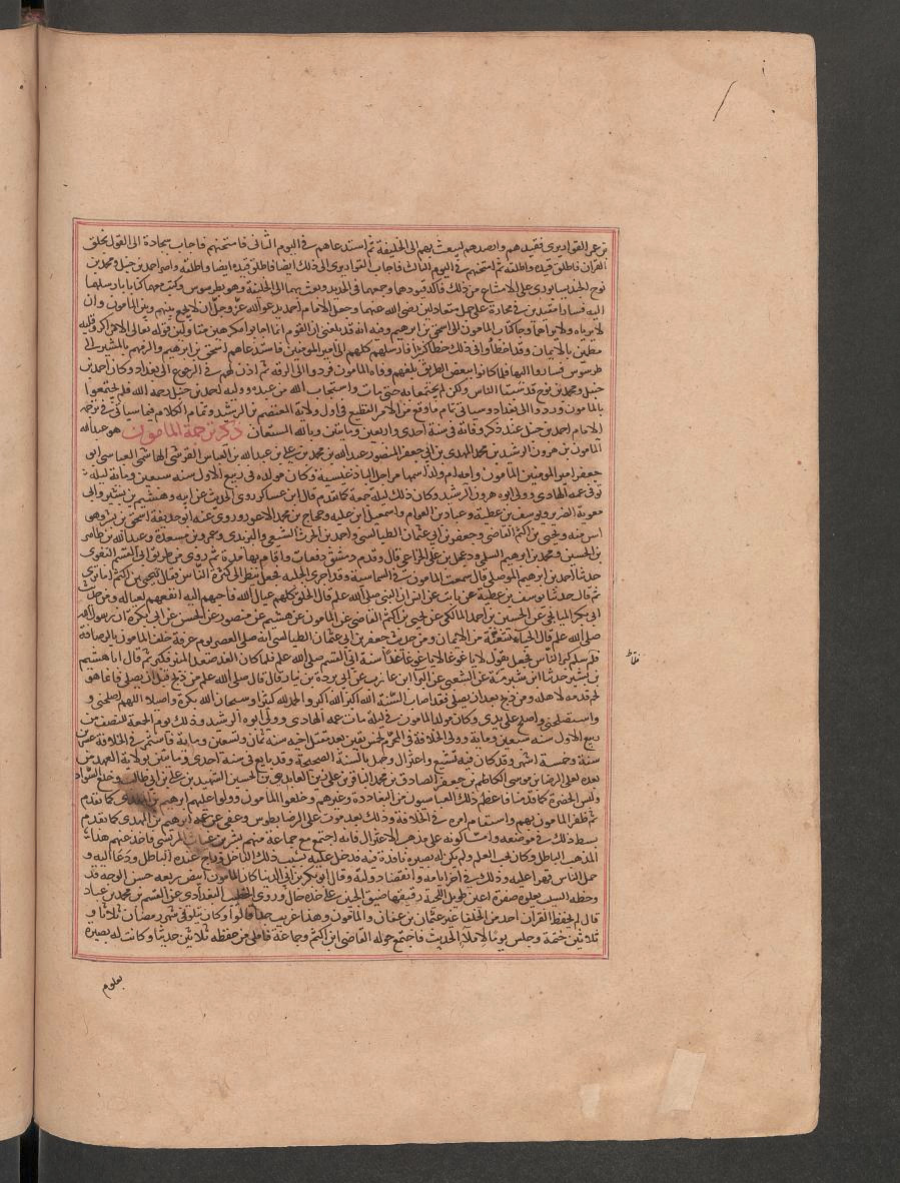 بن عمر القواريرى فقيدهم وارصدهم ليبعث بهم الى الخليفة ثم استدعاهم فى اليوم الثانى فامتحنهم فاجاب سجادة الى القول بخلق
القران فاطلق قيده واطلقه ثم امتحنهم فى اليوم الثالث فاجاب القواريرى الى ذلك ايضا فاطلق قيده ايضا واطلقه واصر احمد بن حنبل ومحمد بن
نوح الجنديسابورى على الامتناع من ذلك فاكد قيودهما وجمعهما فى الحديد وبعث بهما الى الخليفة وهو بطرسوس وكتب معهما كتابا بارسالهما
اليه فسارا مقيدين فى محارة على جمل متعادلين رضى الله عنهما وجعل الامام احمد يدعو الله عز وجل ان لا يجمع بينهم وبين المامون وان
لا يرياه ولا يراهما وجا كتاب المامون الى اسحق بن ابرهيم وفيه انه قد بلغنى ان القوم انما اجابوا مكرهين متاولين قوله تعالى الا من اكره وقلبه
مطمئن بالايمان وقد اخطأوا فى ذلك خطأ كبيرا فارسلهم كلهم الى امير المومنين فاستدعاهم اسحق بن ابرهيم والزمهم بالمسير الى
طرسوس فساروا اليها فلما كانوا ببعض الطريق بلغهم وفاه المامون فردوا الى الرقه ثم اذن لهم فى الرجوع الى بغداد وكان احمد بن
حنبل ومحمد بن نوح قد سبقا الناس ولكن لم يجتمعا به حتى مات واستجاب الله من عبده ووليه احمد بن حنبل رحمه الله فلم يجتمعوا
بالمامون وردوا الى بغداد وسياتى تمام ما وقع من الامر الفظيع فى اول ولاية المعتصم بن الرشيد وتمام الكلام فيما سياتى فى ترجمة
الامام احمد بن حنبل عند ذكر وفاته فى سنة احدى واربعين ومايتين وبالله المستعان ذكر ترجمة المامون هو عبد الله
المامون بن هرون الرشيد بن محمد المهدى بن ابى جعفر المنصور عبد الله بن محمد بن على بن عبد الله بن العباس القرشى الهاشمى العباسى ابو
جعفر امير المومنين المامون وامه ام ولد اسمها مراجل الباذغيسية وكان مولده فى ربيع الاول سنه سبعين ومائة ليله
توفى عمه الهادى وولى ابوه هرون الرشيد وكان ذلك ليلة جمعة كما تقدم قال ابن عساكر وروى الحديث عن ابيه وهشيم بن بشير وابى
معوية الضرير ويوسف بن عطية وعباد بن العوام واسمعيل ابن عليه وحجاج بن محمد الاعور وروى عنه ابو حذيفة اسحق بن بشر وهو
اسن منه ويحيى بن اكثم القاضى وجعفر بن ابى عثمان الطيالسى واحمد بن الحرث الشيعى واليزيدى وعمرو بن مسعدة وعبد الله بن طاهر
بن الحسين ومحمد بن ابرهيم السلمى ودعبل بن على الخزاعى قال وقدم دمشق دفعات واقام بها مدة ثم روى من طريق ابى القسم البغوى
حدثنا احمد بن ابرهيم الموصلى قال سمعت المامون فى الشماسية وقد اجرى الحلبة فجعل ينظر الى كثرة الناس فقال ليحيى بن اكثم اما ترى
ثم قال حدثنا يوسف بن عطية عن ثابت عن انس ان النبى صلى الله على قال الخلق كلهم عيال الله فاحبهم اليه انفعهم لعياله ومن حديث
ابى بكر الميانجى عن الحسين بن احمد المالكى عن يحيى بن اكثم القاضى عن المامون عن هشيم عن منصور عن الحسن عن ابى بكرة ان رسول الله
صلى الله على قال الحياء شعبة من الايمان ومن حديث جعفر بن ابى عثمان الطيالسى انه صلى العصر يوم عرفة خلف المامون بالرصافة
فلم سلم كبر الناس فجعل يقول لا يا غوغا لا يا غوغا غدا سنة ابى القسم صلى الله على فلما كان الغد صعد المنبر فكبر ثم قال انا هشيم
بن بشير حدثنا ابن شبرمة عن الشعبى عن البرا ابن عازب عن ابى بردة بن نيار قال قال صلى الله على من ذبح قبل ان يصلى فانما هو
لحم قدمه لاهله ومن ذبح بعد ان يصلى فقد اصاب السنة الله اكبر الله اكبر والحمد لله كثيرا وسبحان الله بكرة واصيلا اللهم اصلحنى و
واستصلحنى واصلح على يدى وكان مولد المامون فى ليلة مات عمه الهادى وولى ابوه الرشيد وذلك يوم الجمعة للنصف من
ربيع الاول سنه سبعين ومايه وولى الخلافة فى المحرم لخمس بقين بعد مقتل اخيه سنه ثمان وتسعين ومايه فاستمر فى الخلافة عشرين
سنة وخمسة اشهر وقد كان فيه تشيع واعتزال وجهل بالسنة الصحيحة وقد بايع فى سنة احدى ومايتين بولاية العهد من
بعده لعلى الرضا بن موسى الكاظم بن جعفر الصادق بن محمد الباقر بن على زين العابدى بن الحسين الشهيد بن على بن ابى طالب وخلع السواد
ولبس الخضرة كما قدمنا فاعظم ذلك العباسيون من البغاددة وغيرهم وخلعوا المامون وولوا عليهم ابرهيم بن المهدى كما تقدم
ثم ظفر المامون بهم واستقام امره فى الخلافة وذلك بعد موت على الرضا بطوس وعفى عن عمه ابرهيم بن المهدى كما تقدم
بسط ذلك فى موضعه واما كونه على مذهب الاعتزال فانه اجتمع مع جماعة منهم بشر بن غياث المريسى فاخذ عنهم هذا
المذهب الباطل وكان يحب العلم ولم يكن له بصيرة نافذة فيه فدخل عليه بسبب ذلك الداخل وراج عنده الباطل ودعا اليه و
حمل الناس قهرا عليه وذلك فى اخر ايامه وانقضا دولته وقال ابو بكر بن ابى الدنيا كان المامون ابيض ربعه حسن الوجه قد
وخطه الشيب يعلوه صفرة اعين طويل اللحية رقيقها ضيق الجبين على خده خال وروى الخطيب البغدادى عن القسم بن محمد بن عباد
قال لم يحفظ القران احد من الخلفا غير عثمان بن عفان والمامون وهذا غريب جدا قالوا وكان يتلو فى شهر رمضان ثلاثا و
ثلاثين ختمة وجلس يوما لاملاء الحديث فاجتمع حوله القاضى ابن اكثم وجماعة فاملى من حفظه ثلاثين حديثا وكانت له بصيرة
بعلوم